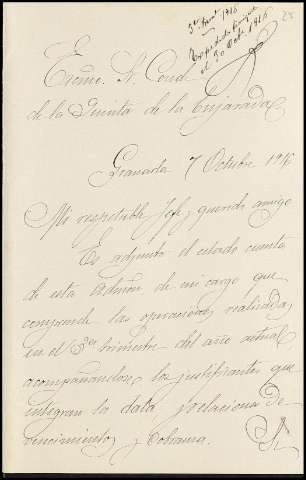 3er trimt 1916
28
el 30 Octe 1916
Excmo. Sr. Conde
de la Quinta de la Enjarada
Granada 7 Octubre 1916
Mi respetable Jefe y querido amigo
Es adjunta el estado cuenta
de esta Admon de mi cargo que
comprende las operaciones realizadas
en el 3er trimestre del año actual
acompañandose los justificantes que
integran la data y relaciones de
vencimientos y Cobranza.